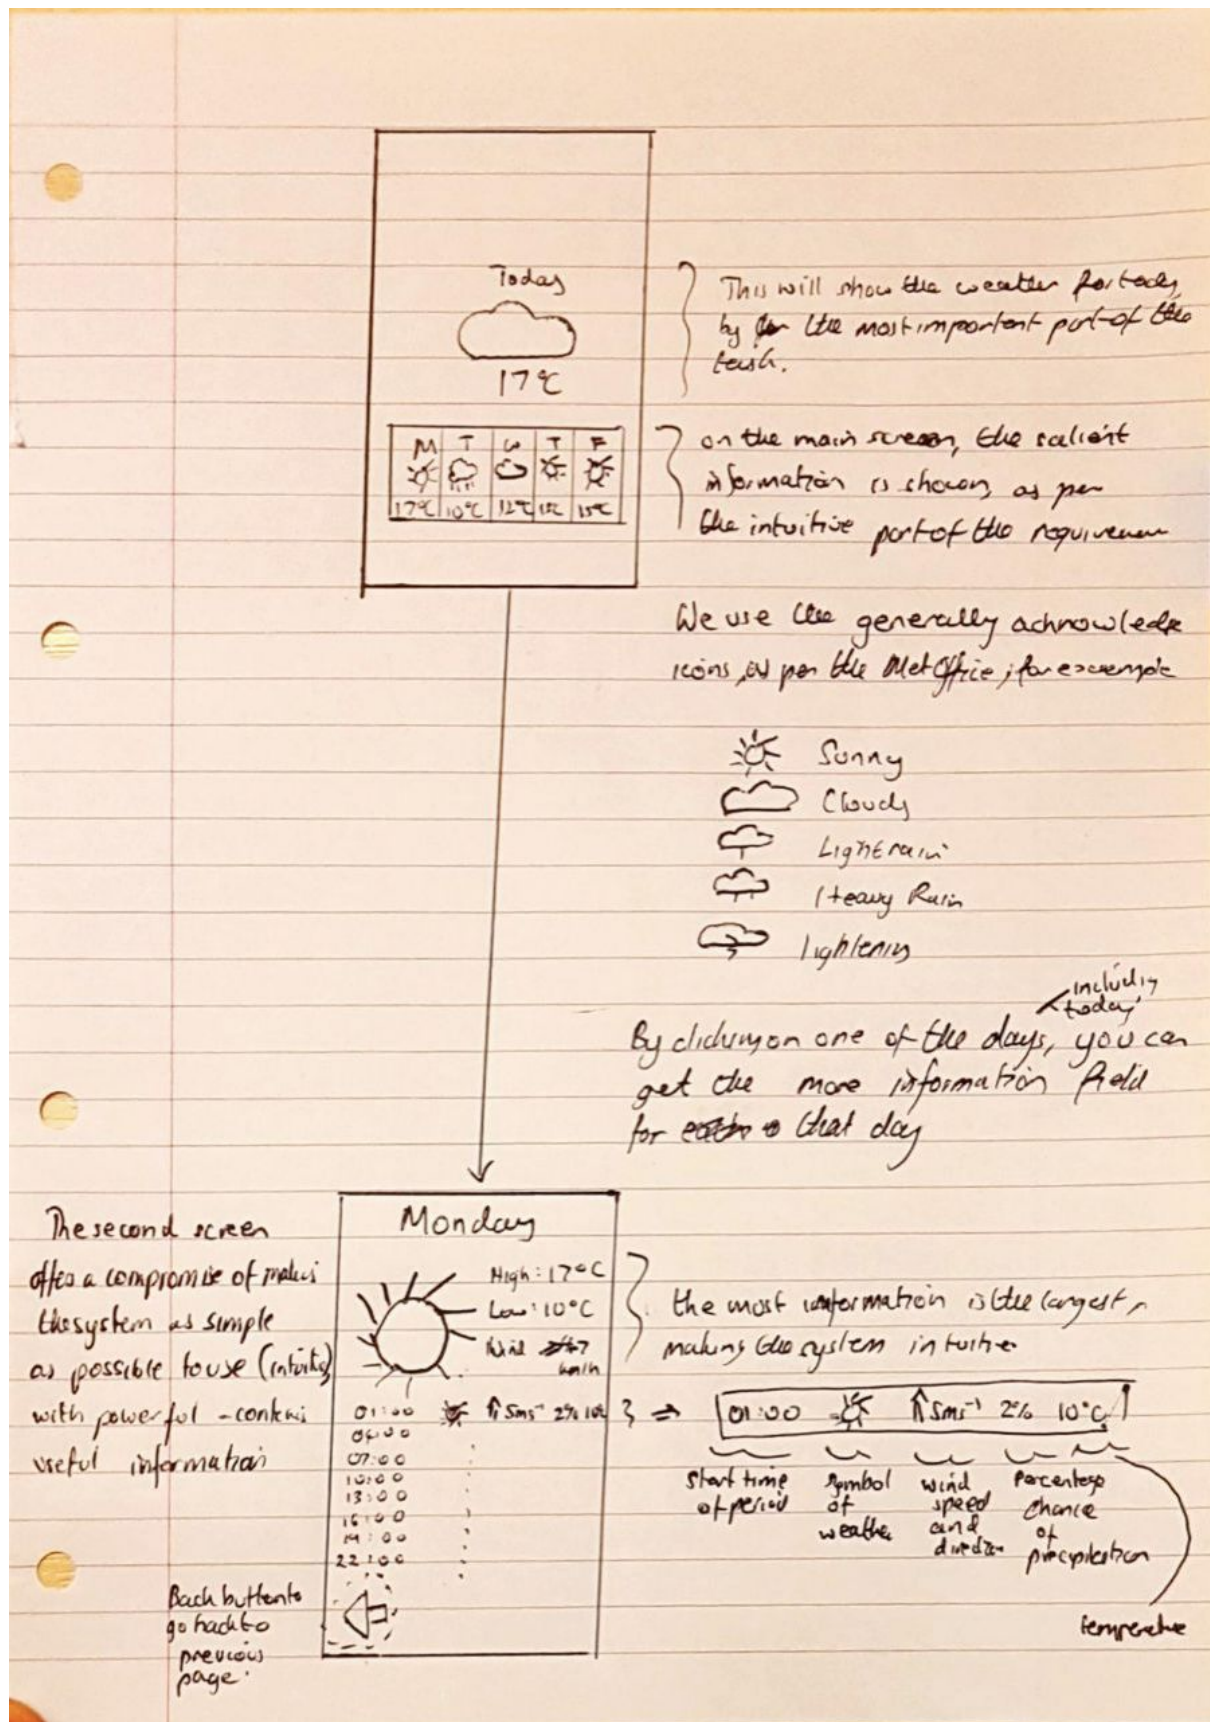 Today
17°C
This will show the weather for today,
by far the most important part of the
task.
M T W T F
17°C 10°C 12°C 15°C 15°C
on the main screen, the salient
information is shown, as per
the intuitive part of the requirement
We use the generally acknowledge
icons, as per the Met Office, for example
Sunny
Cloudy
Light rain
Heavy Rain
lightening
including
today
By clicking on one of the days, you can
get the more information field
for that day
The second screen
offers a compromise of making
the system as simple
as possible to use (intuitive)
with powerful - contains
useful information
Monday
High: 17°C
Low: 10°C
Wind
km/h
01:00 5ms⁻¹ 2% 10°C
04:00
07:00
10:00
13:00
16:00
19:00
22:00
Back button to
go back to
previous
page.
the most information is the largest,
making the system intuitive
01:00 5ms⁻¹ 2% 10°C
start time
of period
symbol
of
weather
wind
speed
and
direction
percentage
chance
of
precipitation
temperature